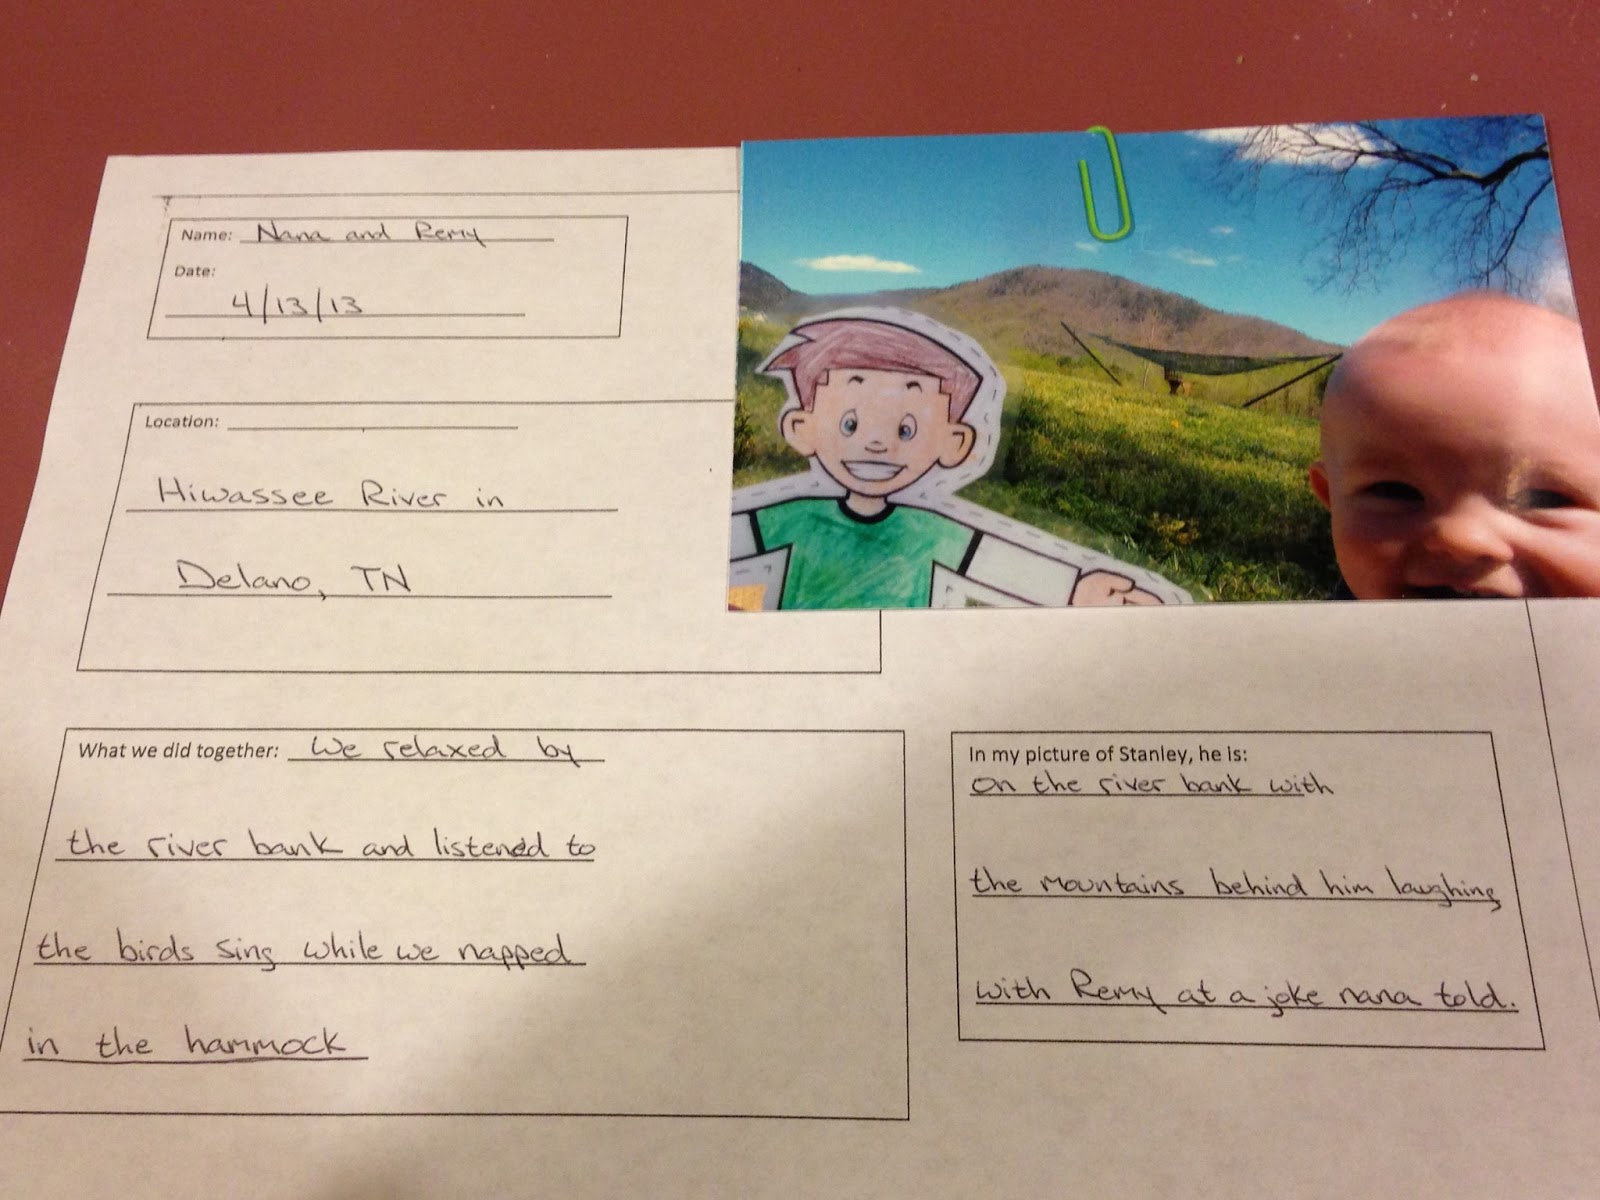 Name: Nana and Remy
Date:
4/13/13
Location:
Hiwassee River in
Delano, TN
What we did together: We relaxed by
the river bank and listened to
the birds sing while we napped
in the hammock
In my picture of Stanley, he is:
on the river bank with
the mountains behind him laughing
with Remy at a joke nana told.